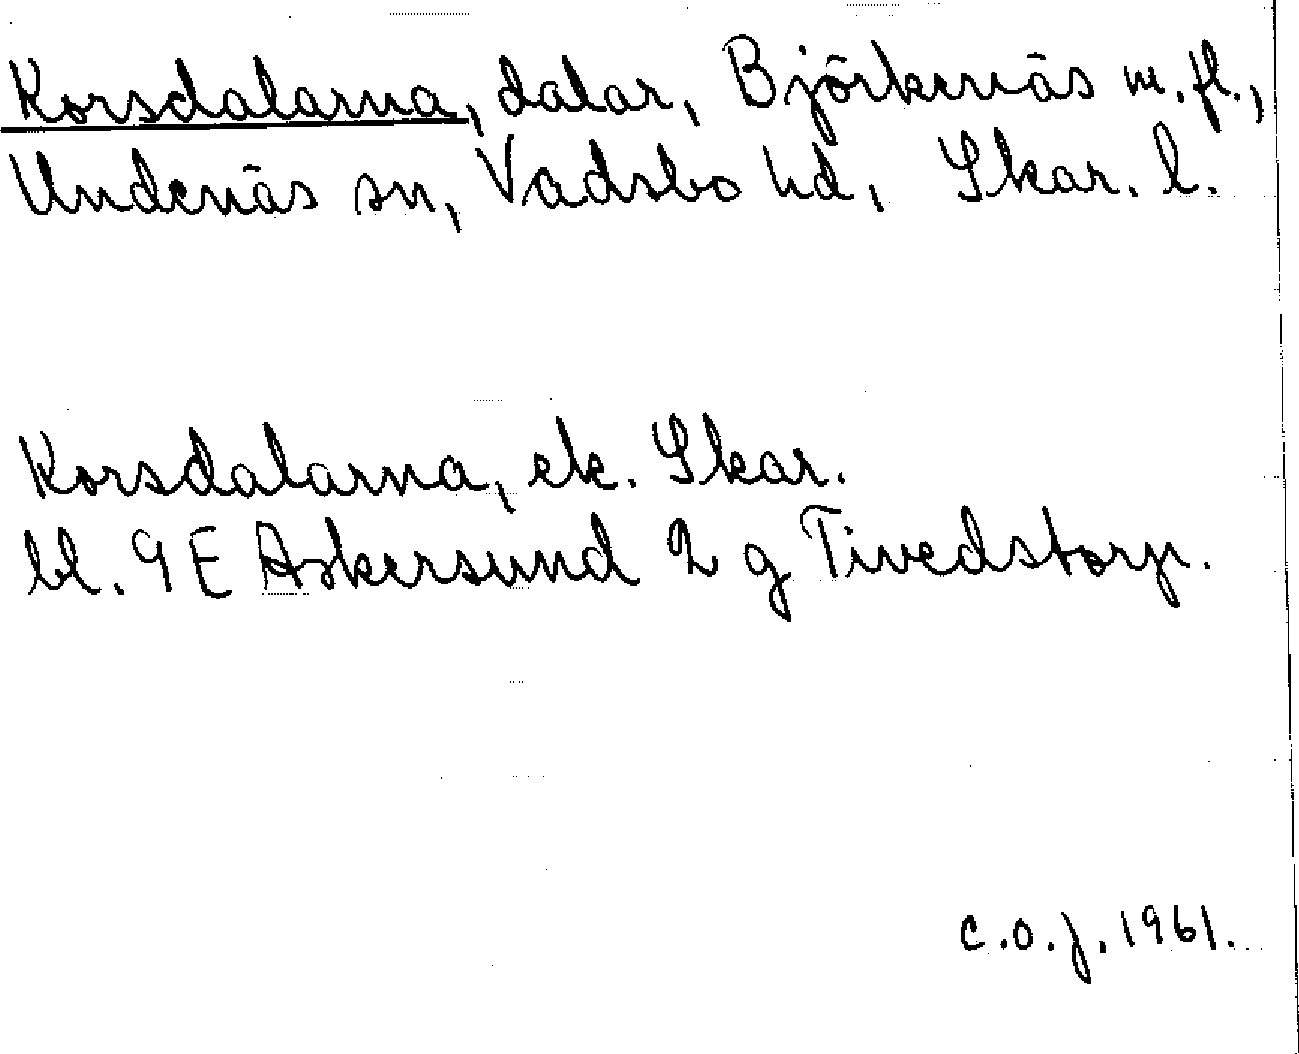 Korsdalarna, dalar, Björkenäs m.fl.,
Undenäs sn, Vadsbo hd, Skar. l.
Korsdalarna, ek. Skar.
bl. 9E Askersund 2 g Tivedstorp.
C.O.J. 1961.